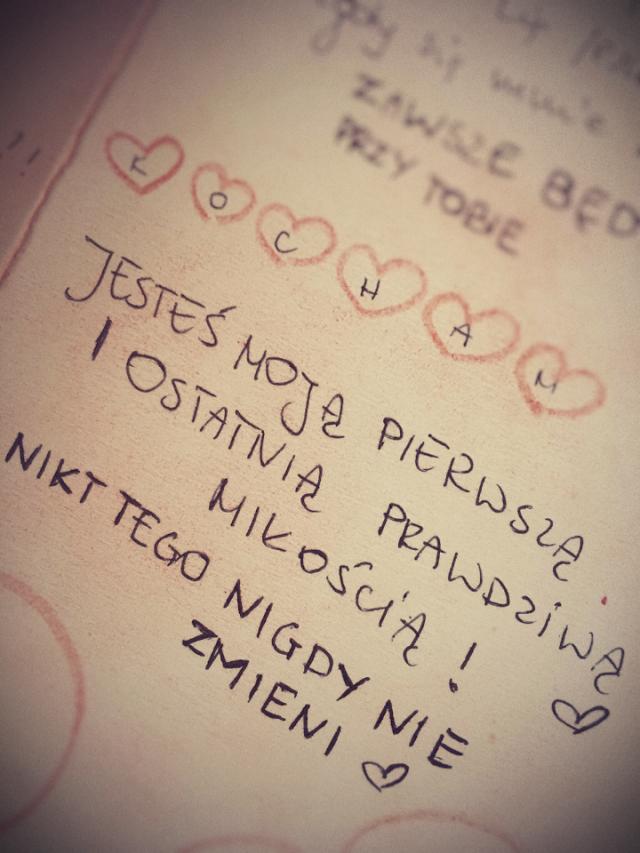 się
ZAWSZE BĘD
PRZY TOBIE
KOCHAM
JESTEŚ MOJĄ PIERWSZĄ
I OSTATNIĄ PRAWDZIWĄ
MIŁOŚCIĄ !
NIKT TEGO NIGDY NIE
ZMIENI